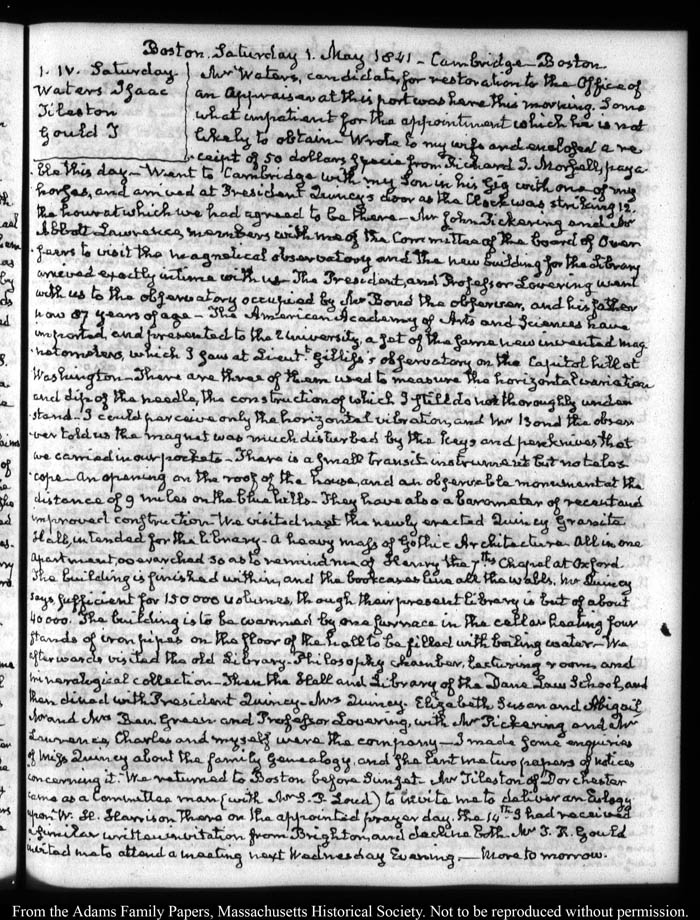 Boston. Saturday 1. May 1841 - Cambridge - Boston
1. IV. Saturday
Waters Isaac
Tileston
Gould T
Mr Waters, candidate, for restoration to the Office of
an Appraiser at this port was here this morning. Some
what impatient for the appointment which he is not
likely to obtain - Wrote to my wife and enclosed a re
ceipt of 50 dollars from Richard S. paya
ble this day - Went to Cambridge with my Son in his Gig with one of my
horses, and arrived at President Quincy's door as the Clock was striking 12.
the hour at which we had agreed to be there - Mr John Pickering and Mr
Abbott Lawrence, members with me of the Committee of the board of Over
seers to visit the magnetical observatory and the new building for the Library
arrived exactly in time with us - The President, and Professor Lovering went
with us to the observatory occupied by Mr Bond the observer, and his father
now 87 years of age - The American Academy of Arts and Sciences have
imported, and presented to the University, a set of the same new invented mag
netometers, which I saw at Lieutt. Gilliss's observatory on the Capitol hill at
Washington - There are three of them used to measure the horizontal variation
and dip of the needle, the construction of which I still do not thoroughly under
stand. I could perceive only the horizontal vibration, and Mr Bond the obser
ver told us the magnet was much disturbed by the keys and penknives that
we carried in our pockets - There is a small transit instrument but no teles
cope - An opening on the roof of the house, and an observable monument at the
distance of 9 miles on the blue hills - They have also a barometer of recent and
improved construction - We visited next the newly erected Quincy Granite
Hall, intended for the library - A heavy mass of Gothic Architecture. All in one
Apartment, overarched so as to remind me of Henry the 7ths Chapel at Oxford.
The building is finished within, and the bookcases line all the walls. Mr Quincy
says sufficient for 150000 volumes, though their present library is but of about
40000. The building is to be warmed by one furnace in the cellar heating four
stands of iron pipes on the floor of the hall to be filled with boiling water - We
afterwards visited the old Library - Philosophy chamber, lecturing room, and
mineralogical collection - Then the Hall and Library of the Dane Law School, and
then dined with President Quincy - Mrs Quincy. Elizabeth, Susan and Abigail,
Mr and Mrs Ben. Green and Professor Lovering, with Mr Pickering and Mr
Lawrence, Charles and myself were the company - I made some enquiries
of Miss Quincy about the family Genealogy, and she lent me two papers of notices
concerning it - We returned to Boston before Sunset. Mr Tileston of Dorchester
came as a Committee man (with Mr S. P. Loud) to invite me to deliver an Eulogy
upon W. H. Harrison there on the appointed prayer day, the 14th I had received
a similar written invitation from Brighton, and decline both - Mr T. R. Gould
invited me to attend a meeting next Wednesday Evening. - More to morrow.
From the Adams Family Papers, Massachusetts Historical Society. Not to be reproduced without permission.